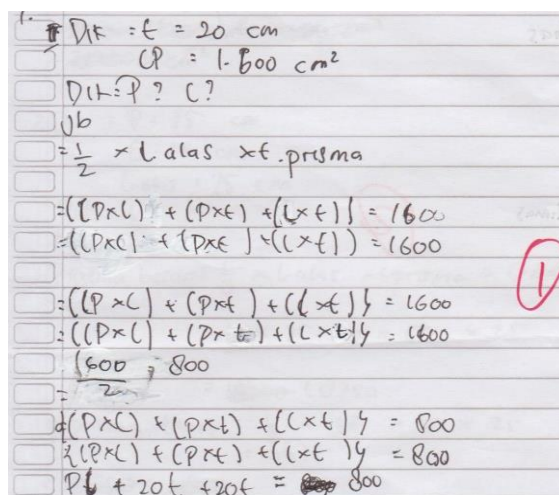 1. Dik = t = 20 cm
CP = 1.600 cm²
Dit = P? C?
Jb
= 1/2 × L alas × t. prisma
= ((P×C) + (P×t) + (L×t)) = 1600
= ((P×C) + (P×t) + (L×t)) = 1600
1
= ((P×C) + (P×t) + (L×t)} = 1600
= ((P×C) + (P×t) + (L×t)} = 1600
1600/2 = 800
=
{(P×C) + (P×t) + (L×t)} = 800
{(P×C) + (P×t) + (L×t)} = 800
PL + 20t + 20t = 800